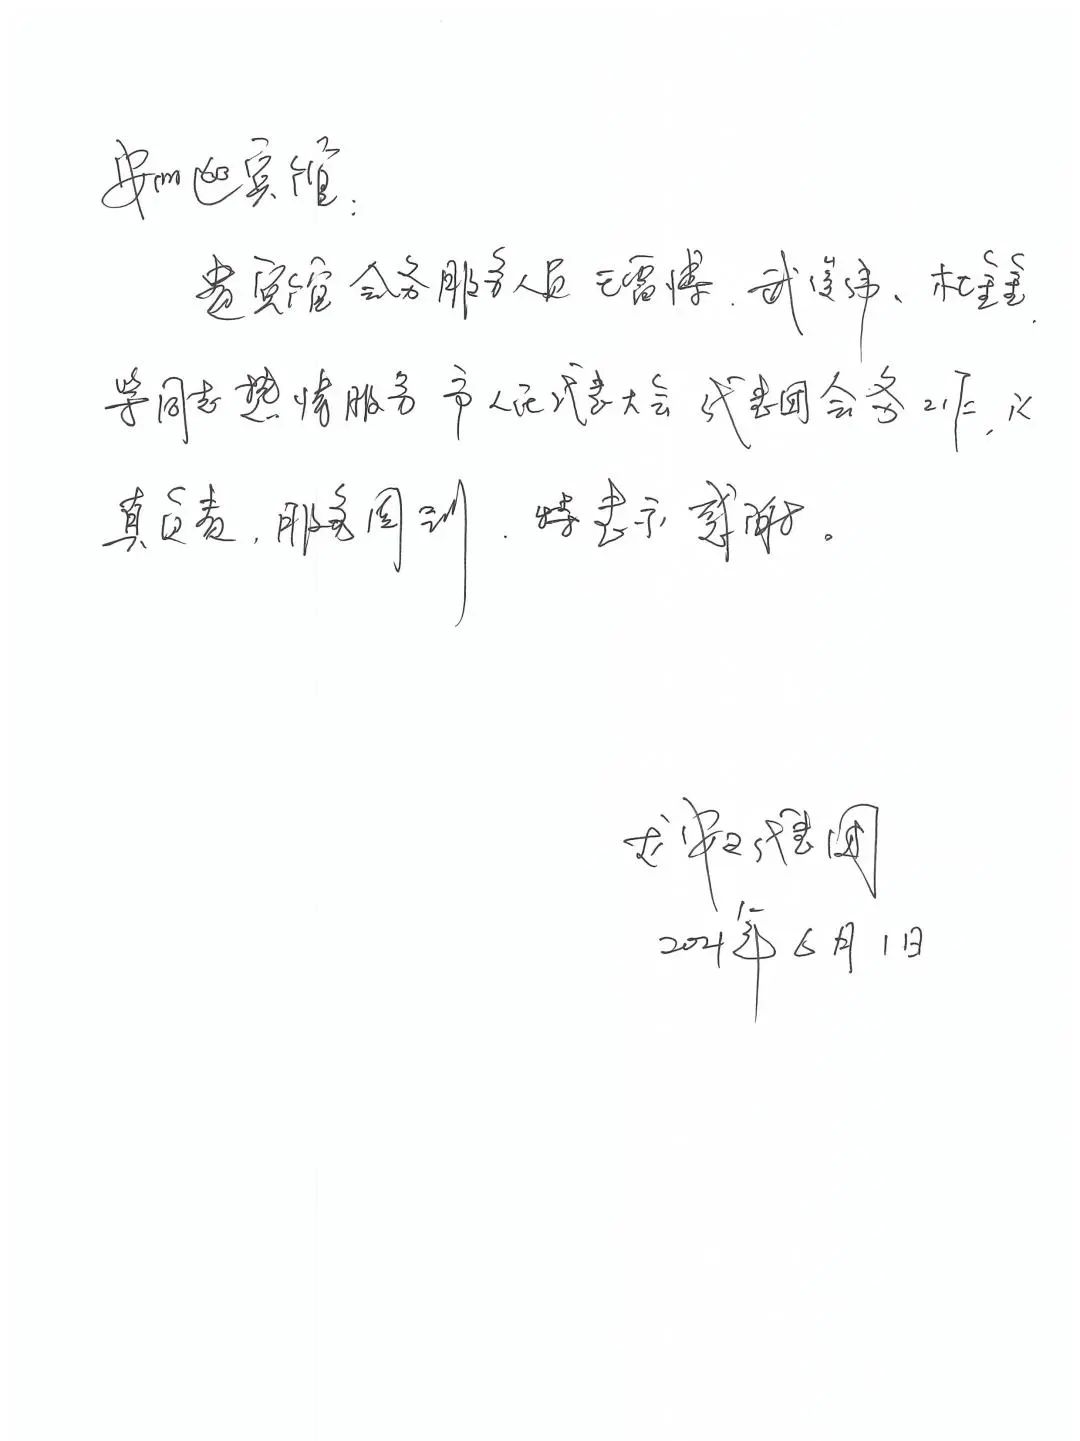 宾馆:
贵宾馆会务服务人员王雷博、武俊伟、杜鑫鑫、
等同志热情服务市人民代表大会代表团会务工作,认
真负责,服务周到,特表示感谢。
龙安区代表团
2021年6月1日